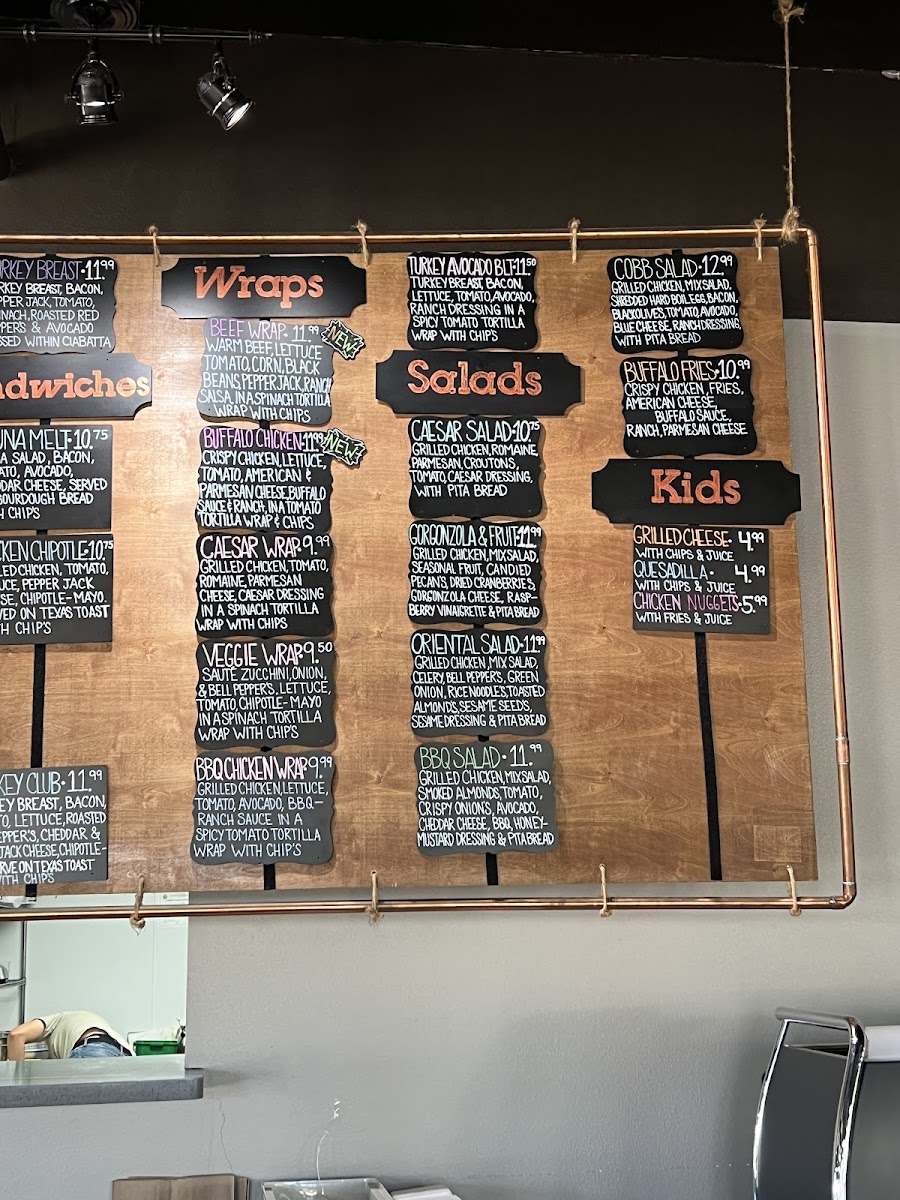 BREAST•11.99
BACON,
JACK, TOMATO,
ROASTED RED
& AVOCADO
WITHIN CIABATTA
MELT•10.75
SALAD, BACON,
AVOCADO,
CHEESE, SERVED
SOURDOUGH BREAD
CHIPS
CHIPOTLE•10.75
CHICKEN, TOMATO,
PEPPER JACK
CHIPOTLE-MAYO.
ON TEXAS TOAST
CHIP'S
CLUB•11.99
BREAST, BACON,
LETTUCE, ROASTED
CHEDDAR &
JACK CHEESE, CHIPOTLE-
ON TEXAS TOAST
WITH CHIPS
Wraps
BEEF WRAP• 11.99
NEW!
WARM BEEF, LETTUCE
TOMATO, CORN, BLACK
BEANS, PEPPERJACK, RANCH
SALSA, IN A SPINACH TORTILLA
WRAP WITH CHIPS
BUFFALO CHICKEN•11.99
NEW!
CRISPY CHICKEN, LETTUCE,
TOMATO, AMERICAN &
PARMESAN CHEESE, BUFFALO
SAUCE & RANCH, IN A TOMATO
TORTILLA WRAP & CHIPS
CAESAR WRAP•9.99
GRILLED CHICKEN, TOMATO,
ROMAINE, PARMESAN
CHEESE, CAESAR DRESSING
IN A SPINACH TORTILLA
WRAP WITH CHIPS
VEGGIE WRAP•9.50
SAUTÉ ZUCCHINI, ONION,
& BELL PEPPER'S, LETTUCE,
TOMATO, CHIPOTLE-MAYO
IN A SPINACH TORTILLA
WRAP WITH CHIP'S
BBQ CHICKEN WRAP•9.99
GRILLED CHICKEN, LETTUCE,
TOMATO, AVOCADO, BBQ-
RANCH SAUCE IN A
SPICY TOMATO TORTILLA
WRAP WITH CHIP'S
TURKEY AVOCADO BLT•11.50
TURKEY BREAST, BACON,
LETTUCE, TOMATO, AVOCADO,
RANCH DRESSING IN A
SPICY TOMATO TORTILLA
WRAP WITH CHIPS
Salads
CAESAR SALAD•10.75
GRILLED CHICKEN, ROMAINE,
PARMESAN, CROUTONS,
TOMATO, CAESAR DRESSING,
WITH PITA BREAD
GORGONZOLA & FRUIT•11.99
GRILLED CHICKEN, MIX SALAD,
SEASONAL FRUIT, CANDIED
PECAN'S, DRIED CRANBERRIES,
GORGONZOLA CHEESE, RASP-
BERRY VINAIGRETTE & PITA BREAD
ORIENTAL SALAD•11.99
GRILLED CHICKEN, MIX SALAD,
CELERY, BELL PEPPER'S, GREEN
ONION, RICE NOODLES, TOASTED
ALMONDS, SESAME SEEDS,
SESAME DRESSING & PITA BREAD
BBQ SALAD• 11.99
GRILLED CHICKEN, MIX SALAD,
SMOKED ALMONDS, TOMATO,
CRISPY ONIONS, AVOCADO,
CHEDDAR CHEESE, BBQ, HONEY-
MUSTARD DRESSING & PITA BREAD
COBB SALAD•12.99
GRILLED CHICKEN, MIX SALAD,
SHREDDED HARD BOIL EGG, BACON,
BLACK OLIVES, TOMATO, AVOCADO,
BLUE CHEESE, RANCH DRESSING,
WITH PITA BREAD
BUFFALO FRIES•10.99
CRISPY CHICKEN, FRIES,
AMERICAN CHEESE,
BUFFALO SAUCE,
RANCH, PARMESAN CHEESE
Kids
GRILLED CHEESE• 4.99
WITH CHIPS & JUICE
QUESADILLA• 4.99
WITH CHIPS & JUICE
CHICKEN NUGGETS•5.99
WITH FRIES & JUICE